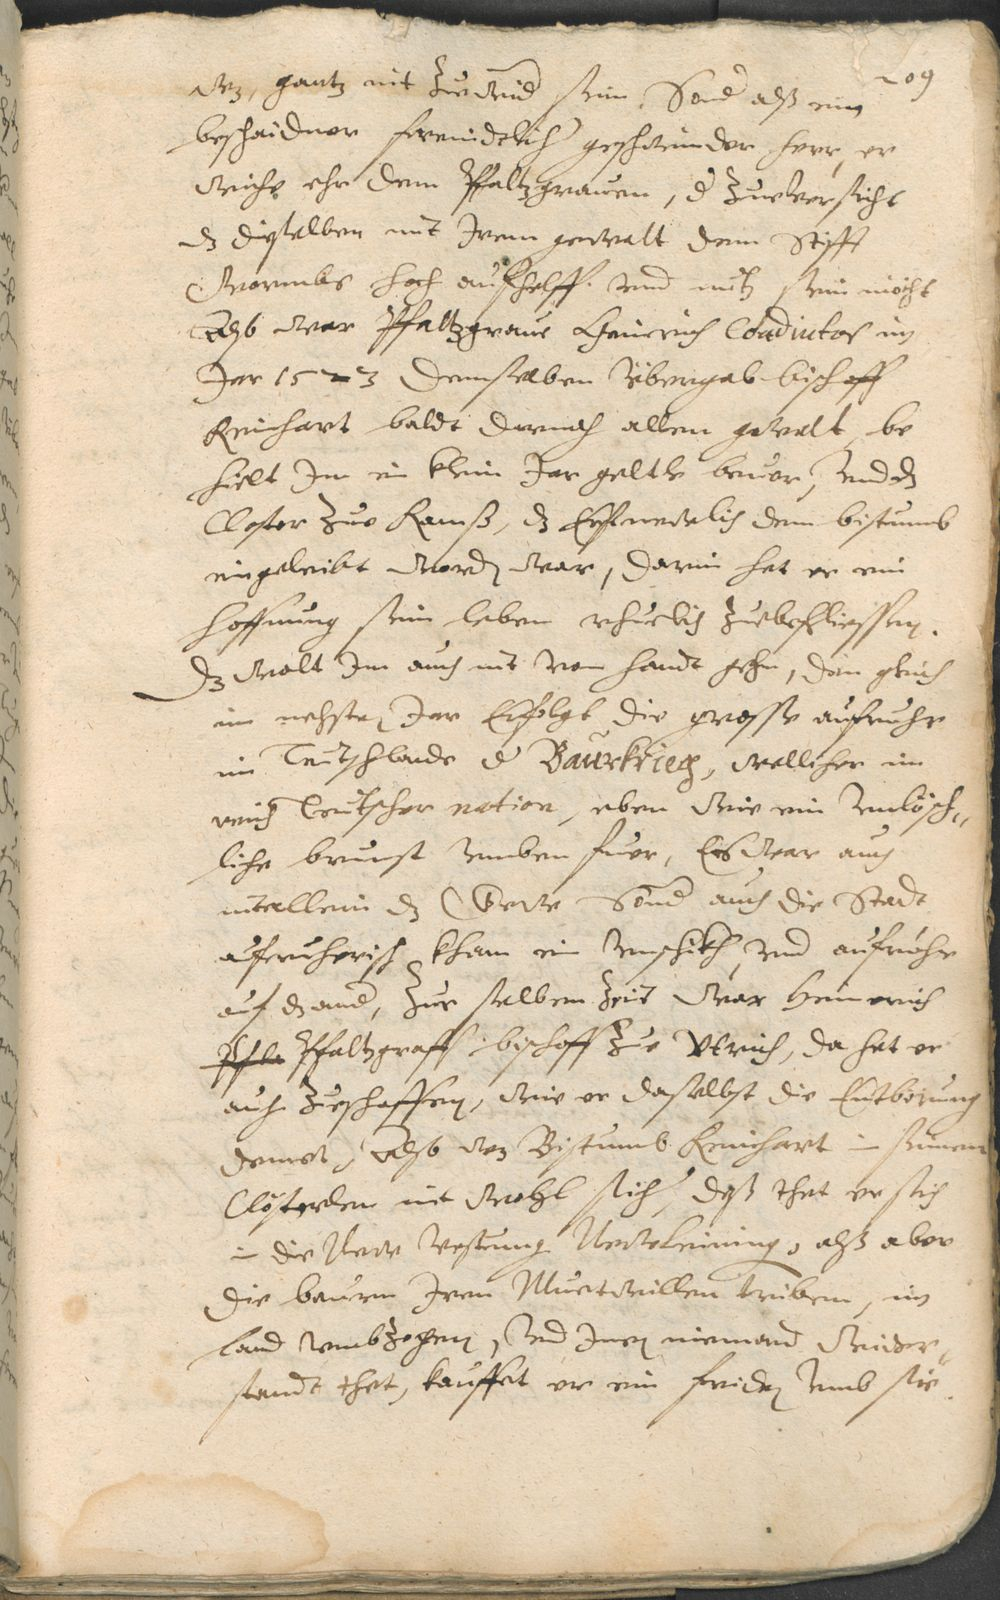 209
gantz nit Zuwid sein, Sond alß ein
beschaidner freundtlich geschwinder herr, er
wiche ehr dem Pfaltzgrauen, d Zuuersicht
dz dieselben mit Irem gewalt dem Stifft
Wormbs hoch aufhelff. vnd nutz sein möcht
Alß war Pfaltzgraue Heinrich Coadiutor im
Jar 1523 demselben übergab bischoff
Reinhart baldt darnach allen gewalt, be
hielt Im ein klein Jar geltle beuor, vnd dz
Closter Zue Ramß, dz Erst newlich dem bistumb
eingeleibt wordn war, darin het er ein
hoffnung sein leben rhuelich Zuebschliessen.
Dz wolt Im auch nit von handt gehn, dan gleich
im nehsten Jar Erfolgt die grosse aufruhr
im Teutschlande d Baurkrieg, wellicher im
reich Teutscher nation, eben wie ein vnlösch„
liche brunst vmben fuer, Es war auch
nit allein dz Sond auch die Stadt
aufruherisch, kham ein vnschikh, vnd aufruhr
auf dz and, Zur selben Zeit war Heinrich
Pfaltzgraff bischoff Zue Vtrich, da het er
auch Zueschaffen, wie er daselbst die Entbörung
demet, Alß von Bistumb Reinhart in seinem
Clösterlen nit wohl sich, deß thet er sich
in die New vestung Newleining, alß aber
die bauren Iren Muetwillen triben, im
land vmbZohen, vnd Inen niemand wider„
standt thet, kauffet er ein friden vmb sie.